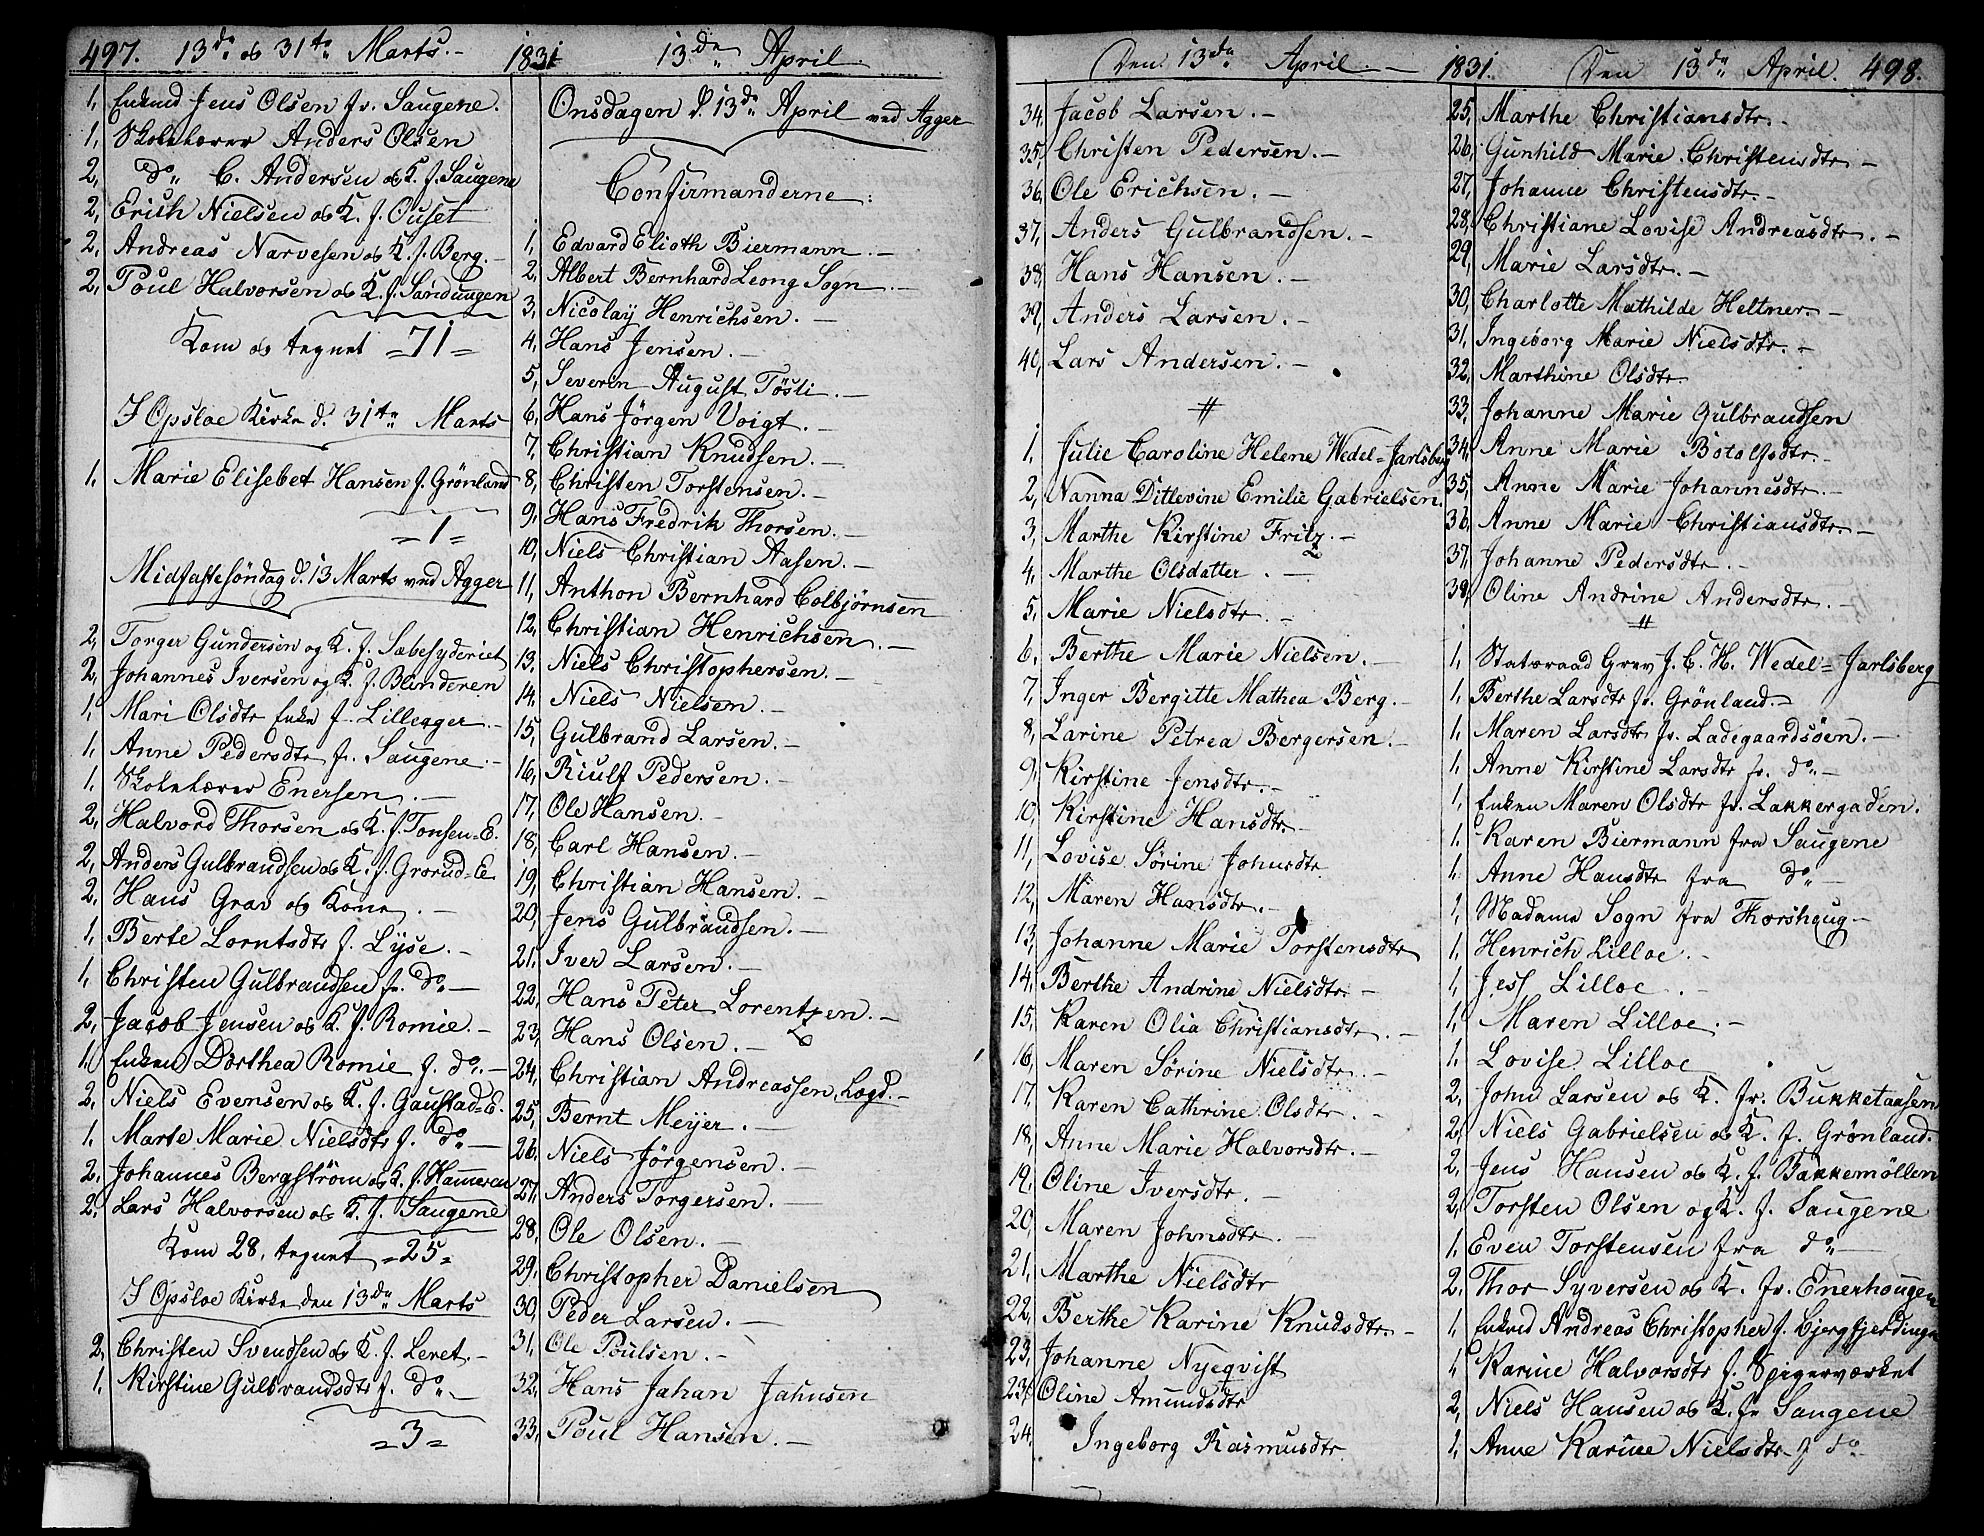 497. 13de og 31te Marts.-
1, Enkmd Jens Olsen fr. Saugene.
1, Skolelærer Anders Olsen
2, do. C. Andersen og K. f. Saugene
2, Erich Nielsen og K. f. Ouset
2, Andreas Narvesen og K. f. Berg.-
2, Poul Halvorsen og K. f. Sandungen
Kom og tegnet =71=
I Opsloe Kirke d. 31te Marts
1, Marie Elisebet Hansen f. Grönland
=1=
Midfastesöndag d. 13 Marts ved Agger
2, Torger Gundersen og K. f. Sæbesyderiet
2, Johannes Iversen og K. f. Blinderen
1, Mari Olsdtr Enke f. Lillegger.-
1, Anne Pedersdtr fr. Saugene.-
1. Skolelærer Enersen.-
2, Halvord Thorsen og K. f. Tonsen=E.
2, Anders Gulbrandsen og K. f. Grorud=E.
2. Hans Grav og Kone.-
1, Berte Lorntsdtr f. Lyse.-
1, Christen Gulbrandsen fr. do.-
2, Jacob Jensen og K. f. Romie.-
1, Enken Dorthea Romie f. do.-
2, Niels Evensen og K. f. Gaustad=E.
1. Marte Marie Nielsdtr f. do.-
2. Johannes Bergström og K. f. Hameren
2. Lars Halvorsen og K. f. Saugene
Kom 28, tegnet =25=
I Opsloe Kirke den 13de Marts
2, Christen Svendsen og K. f. Leret.-
1. Kirstine Gulbrandsdtr f. do.-
=3=
1831 13de April.
Onsdagen d. 13de April ved Agger
Confirmanderne:
1, Edvard Elioth Biermann.-
2, Albert Bernhard Leong Sogn.-
3, Nicolay Henrichsen.-
4, Hans Jensen.-
5, Severin August Tösti.-
6, Hans Jörgen Voigt.-
7, Christian Knudsen.-
8, Christen Torstensen.-
9, Hans Fredrik Thorsen.-
10, Niels Christian Aasen.-
11, Anthon Bernhard Colbjörnsen
12, Christian Henrichsen.-
13, Niels Christophersen.-
14, Niels Nielsen.-
15, Gulbrand Larsen.-
16, Riulf Pedersen.-
17, Ole Hansen.-
18, Carl Hansen.-
19, Christian Hansen.-
20, Jens Gulbrandsen.-
21, Iver Larsen.-
22, Hans Peter Lorentzen.-
23, Hans Olsen.-
24, Christian Andreassen, Logd.-
25, Bernt Meyer.-
26, Niels Jörgensen.-
27, Anders Torgersen.-
28, Ole Olsen.-
29, Christopher Danielsen
30, Peder Larsen.-
31, Ole Poulsen.-
32, Hans Jahan Jahnsen
33, Poul Hansen.-
Den 13de April.-
34, Jacob Larsen.-
35, Christen Pedersen.-
36, Ole Erichsen.-
37, Anders Gulbrandsen.-
38, Hans Hansen.-
39, Anders Larsen.-
40, Lars Andersen.-
#
1, Julie Caroline Helene Wedel=Jarlsberg
2, Nanna Ditlevine Emilie Gabrielsen.
3, Marthe Kirstine Fritz.-
4, Marthe Olsdatter.-
5, Marie Nielsdtr.-
6, Berthe Marie Nielsen.-
7, Inger Bergitte Mathea Berg.-
8, Larine Petrea Bergersen.-
9, Kirstine Jensdtr.-
10, Kirstine Hansdtr.-
11, Lovise Sörine Johnsdtr
12, Maren Hansdtr.-
13, Johanne Marie Torstensdtr
14, Berthe Andrine Nielsdtr.-
15, Karen Olia Christiansdtr.-
16, Maren Sörine Nielsdtr.-
17, Karen Cathrine Olsdtr.-
18, Anne Marie Halvorsdtr.-
19, Oline Iversdtr.-
20, Maren Johnsdtr.-
21, Marthe Nielsdtr
22, Berthe Karine Knudsdtr.-
23, Johanne Nyeqvist
23, Oline Amundsdtr
24, Ingeborg Rasmusdtr
1831. Den 13de April. 498.
25, Marthe Christiansdtr.-
26, Gunhild Marie Christensdtr.-
27, Johanne Christensdtr.-
28, Christiane Lovise Andreasdtr.-
29, Marie Larsdtr.-
30, Charlotte Mathilde Heltner.-
31, Ingeborg Marie Nielsdtr.-
32, Marthine Olsdtr.
33, Johanne Marie Gulbrandsen
34, Anne Marie Botolfsdtr.-
35, Anne Marie Johannesdtr.-
36, Anne Marie Christiansdtr.-
37, Johanne Pedersdtr.-
38, Oline Andrine Andersdtr.-
#
1, Statsraad Grev J. C. H. Wedel=Jarlsberg
1, Berthe Larsdtr fr. Grönland.-
1, Maren Larsdtr fr. Ladegaardsöen.-
1, Anne Kirstine Larsdtr fr. do.-
1, Enken Maren Olsdtr fr. Lakkergaden.
1, Karen Biermann fra Saugene
1, Anne Hansdtr fra do.-
1, Madame Sogn fra Thorshaug-
1, Henrich Lilloe.-
1, Jess Lilloe.-
1, Maren Lilloe.-
1. Lovise Lilloe
2, John Larsen og K. fr. Bukketaasen
2, Niels Gabrielsen og K. f. Grönland.
2, Jens Hansen og K. f. Bakkemöllen
2, Torsten Olsen og K. f. Saugene
1. Even Torstensen fra do.-
2. Thor Syversen og K. fr. Enerhougen
1, Enkmd Andreas Christopher f. Bjergfjerdingen
1, Karine Halvorsdtr f. Spigerværket
2, Niels Hansen og K. fr Saugene
1, Anne Karine Nielsdtr f do.-